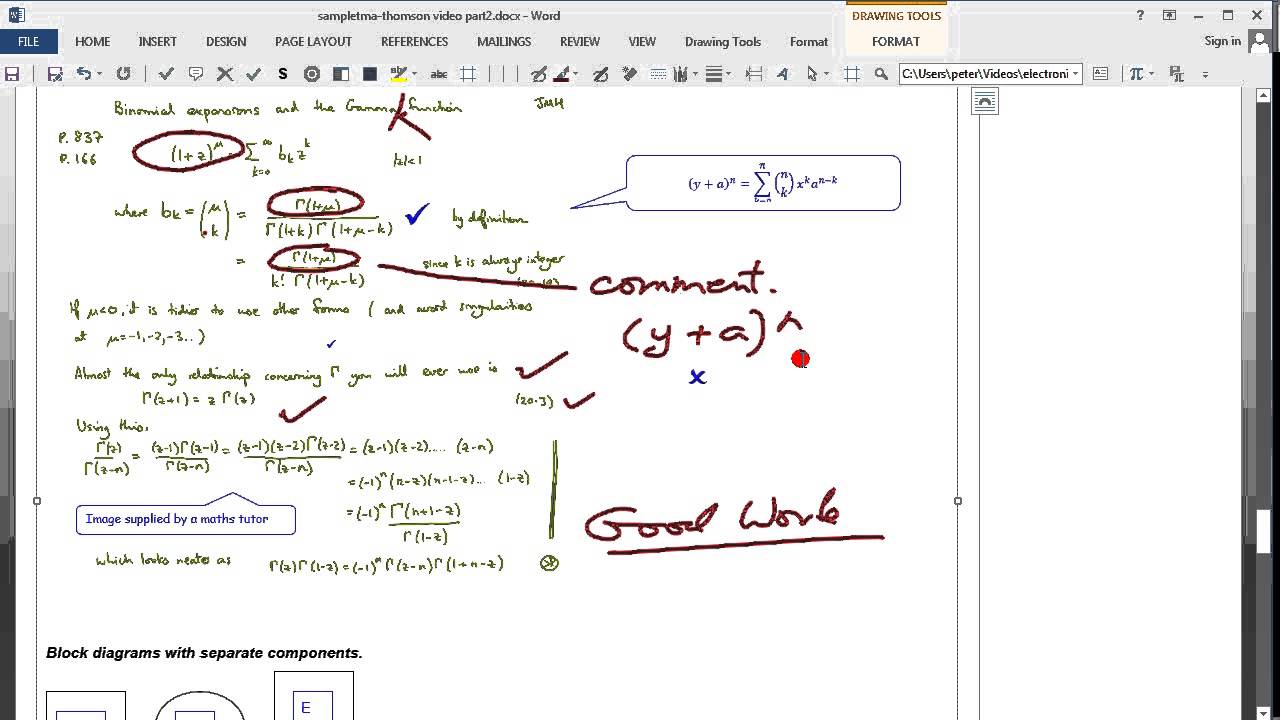 sampletma-thomson video part2.docx - Word
DRAWING TOOLS
FILE HOME INSERT DESIGN PAGE LAYOUT REFERENCES MAILINGS REVIEW VIEW Drawing Tools Format FORMAT Sign in
C:\Users\peter\Videos\electroni
Binomial expansions and the Gamma function JMH
P. 837
P. 166
(1+z)^μ Σ_{k=0}^∞ b_k z^k |z|<1
(y + a)^n = Σ (n k) x^k a^{n-k}
where b_k = (μ k) = Γ(1+μ) / Γ(1+k) Γ(1+μ-k) by definition
= Γ(1+μ) / k! Γ(1+μ-k) since k is always integer
comment.
(y + a)^n
x
If μ<0, it is tidier to use other forms (and avoid singularities
at μ=-1,-2,-3...)
Almost the only relationship concerning Γ you will ever use is
Γ(z+1) = z Γ(z) (20.3)
Using this,
Γ(z)/Γ(z-n) = (z-1)Γ(z-1)/Γ(z-n) = (z-1)(z-2)Γ(z-2)/Γ(z-n) = (z-1)(z-2)..... (z-n)
= (-1)^n (n-z)(n-1-z)... (1-z)
= (-1)^n Γ(n+1-z)/Γ(1-z)
Image supplied by a maths tutor
Good Work
which looks neater as Γ(z)Γ(1-z) = (-1)^n Γ(z-n)Γ(1+n-z)
Block diagrams with separate components.
E